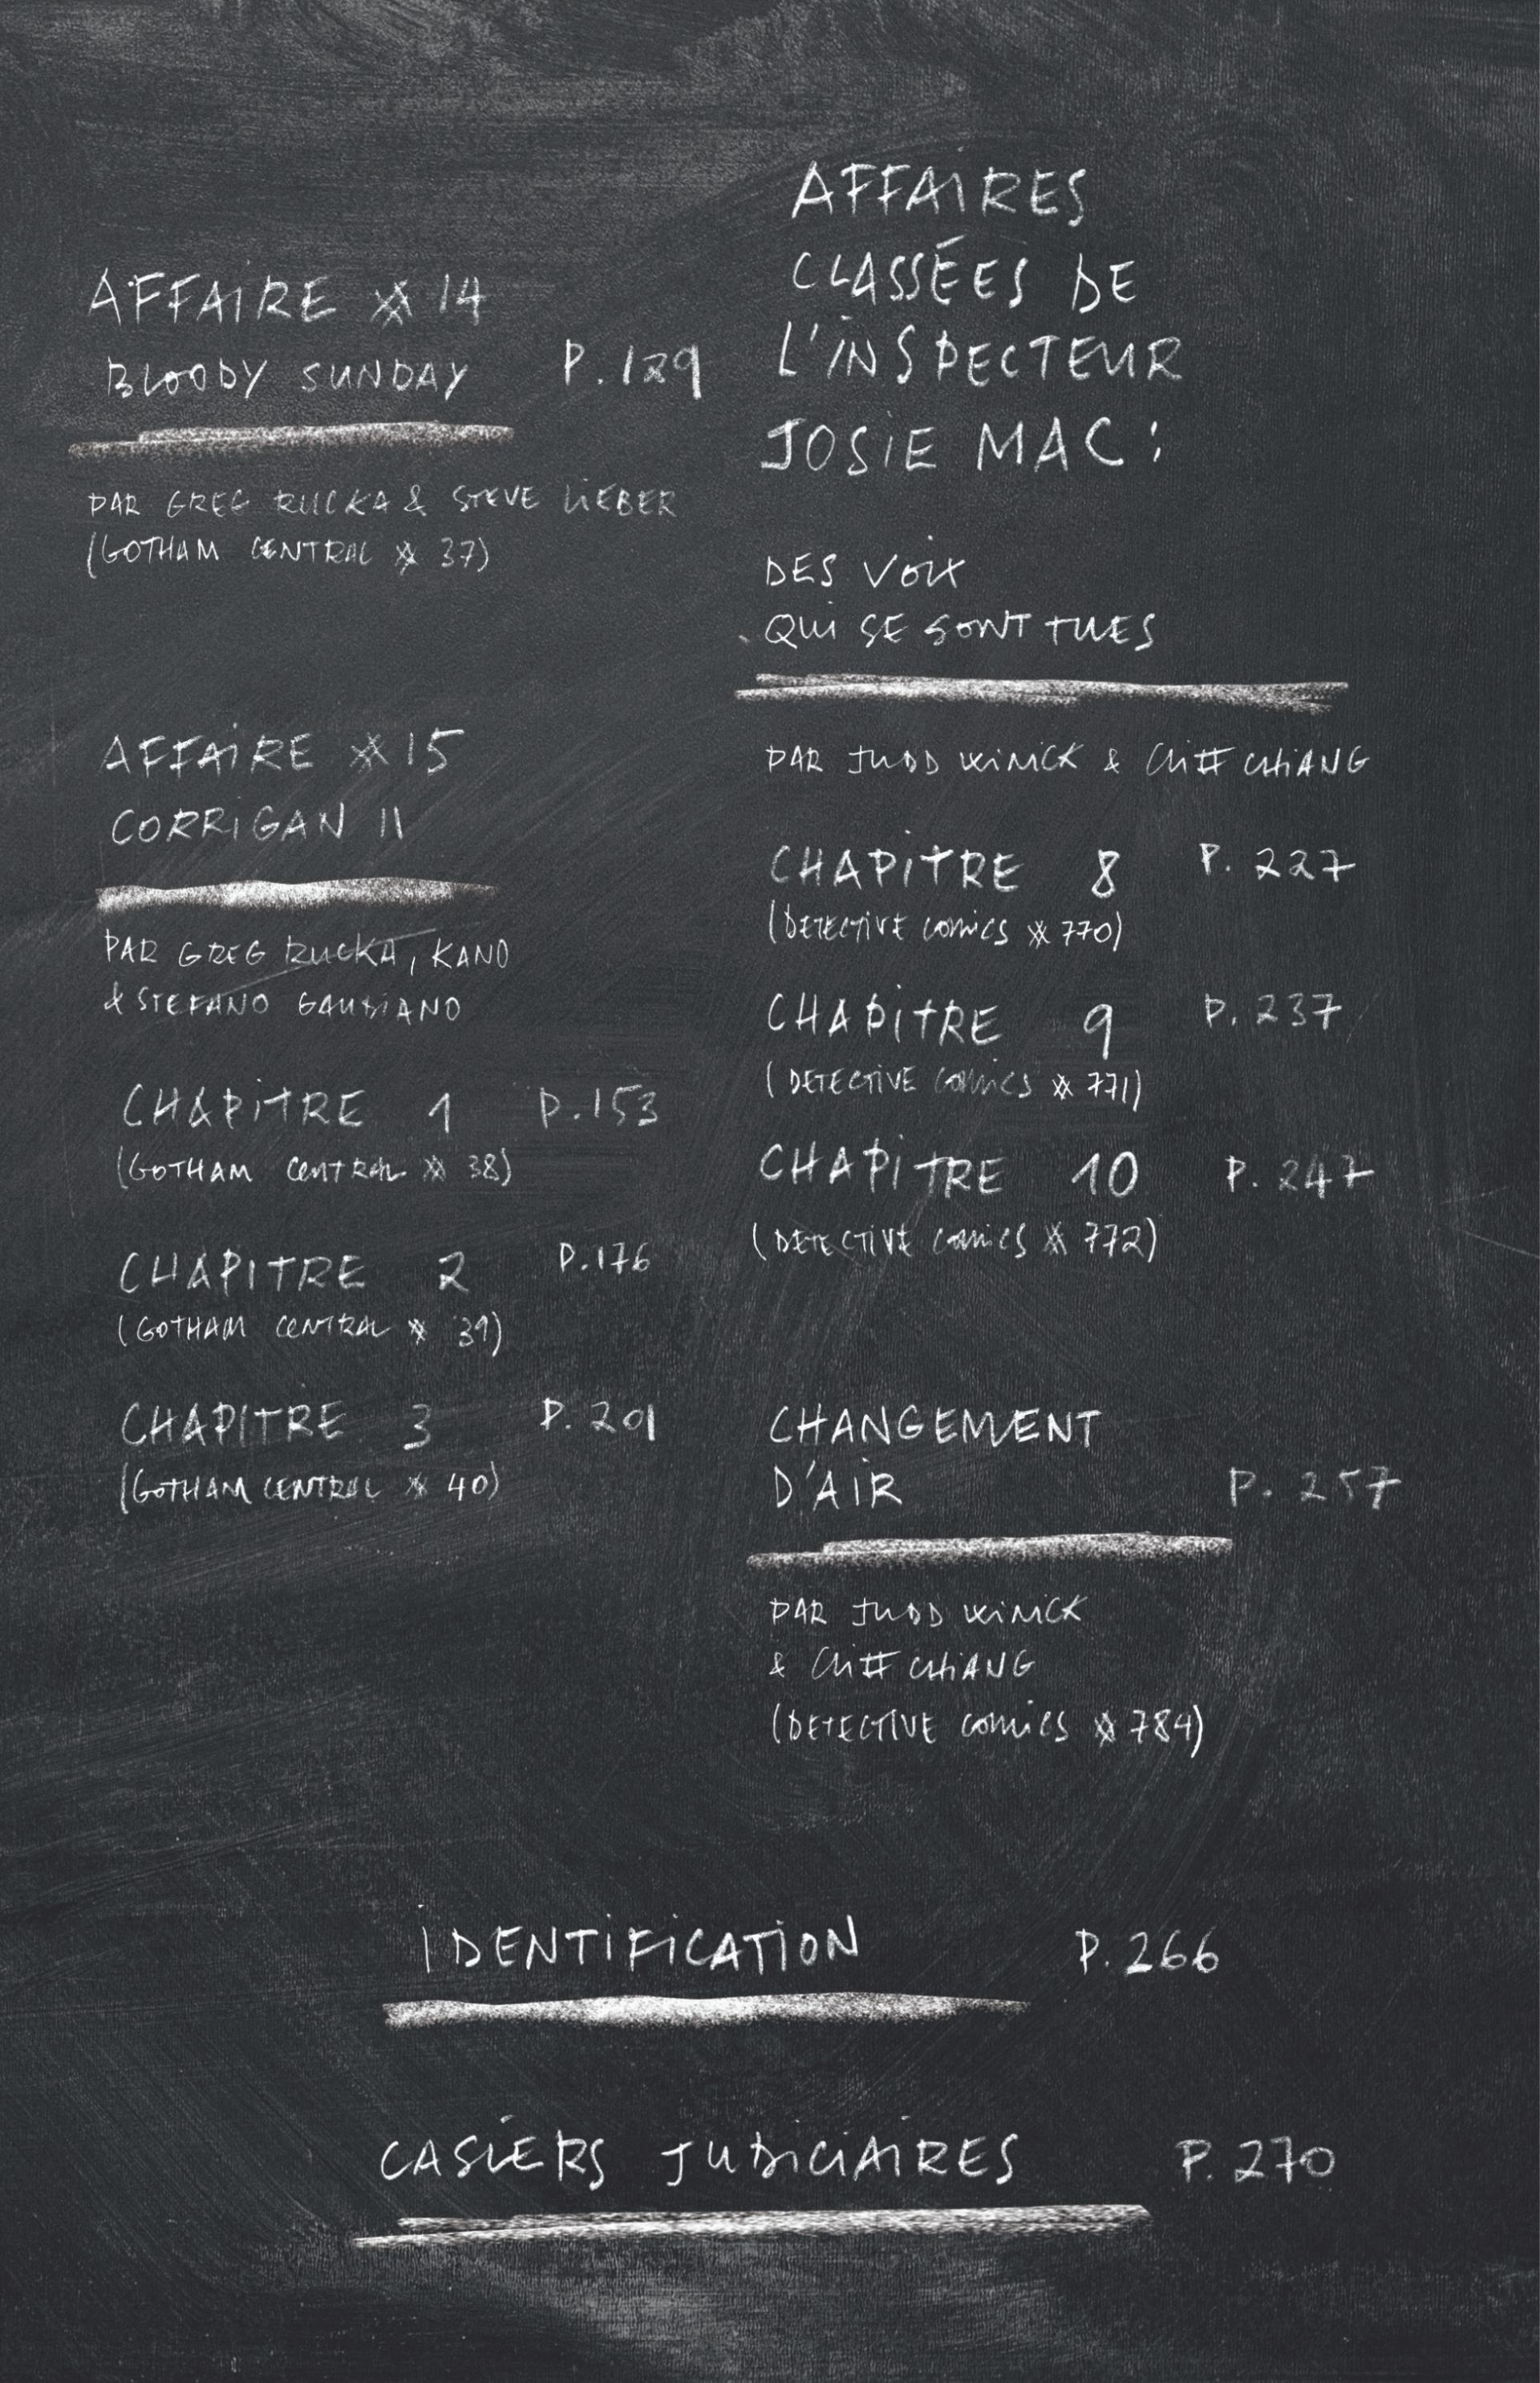 AFFAIRE #14
BLOODY SUNDAY P.129
PAR GREG RUCKA & STEVE LIEBER
(GOTHAM CENTRAL # 37)
AFFAIRE #15
CORRIGAN II
PAR GREG RUCKA, KANO
& STEFANO GAUDIANO
CHAPITRE 1 P.153
(GOTHAM CENTRAL # 38)
CHAPITRE 2 P.176
(GOTHAM CENTRAL # 39)
CHAPITRE 3 P. 201
(GOTHAM CENTRAL # 40)
AFFAIRES
CLASSÉES DE
L'INSPECTEUR
JOSIE MAC :
DES VOIX
QUI SE SONT TUES
PAR JUDD WINICK & CLIFF CHIANG
CHAPITRE 8 P. 227
(DETECTIVE COMICS # 770)
CHAPITRE 9 P. 237
(DETECTIVE COMICS # 771)
CHAPITRE 10 P. 247
(DETECTIVE COMICS # 772)
CHANGEMENT
D'AIR P. 257
PAR JUDD WINICK
& CLIFF CHIANG
(DETECTIVE COMICS # 784)
IDENTIFICATION P. 266
CASIERS JUDICIAIRES P. 270